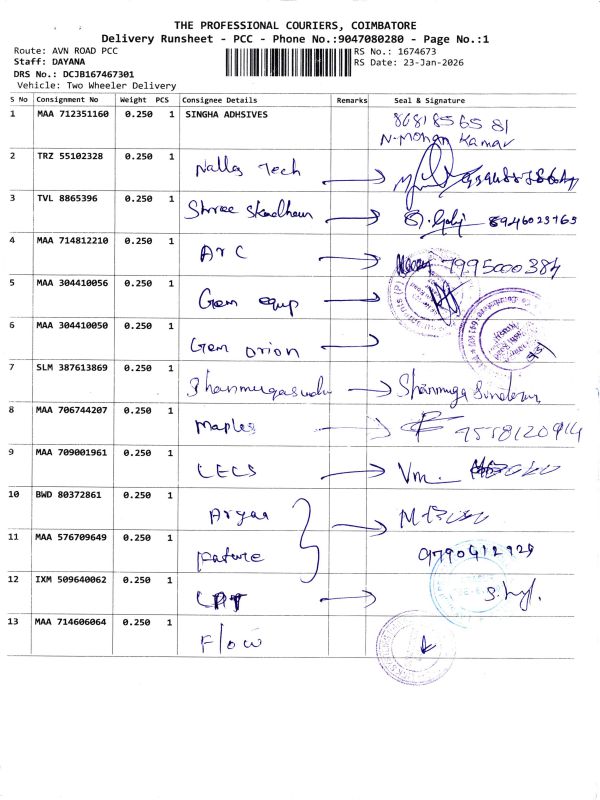 THE PROFESSIONAL COURIERS, COIMBATORE
Delivery Runsheet - PCC - Phone No.:9047080280 - Page No.:1
Route: AVN ROAD PCC RS No.: 1674673
Staff: DAYANA RS Date: 23-Jan-2026
DRS No.: DCJB167467301
Vehicle: Two Wheeler Delivery
S No Consignment No Weight PCS Consignee Details Remarks Seal & Signature
1 MAA 712351160 0.250 1 SINGHA ADHSIVES 8681856581
N-Mohan Kumar
2 TRZ 55102328 0.250 1 Nalla Tech
3 TVL 8865396 0.250 1 Shree 8946023763
4 MAA 714812210 0.250 1 ARC 7995000384
5 MAA 304410056 0.250 1 Gem equp
6 MAA 304410050 0.250 1 Gem orion
7 SLM 387613869 0.250 1 Shanmuga Sundaram
8 MAA 706744207 0.250 1 Maples 7558120914
9 MAA 709001961 0.250 1 LECS Vm.
10 BWD 80372861 0.250 1
11 MAA 576709649 0.250 1 future 9790412929
12 IXM 509640062 0.250 1
13 MAA 714606064 0.250 1 Flow